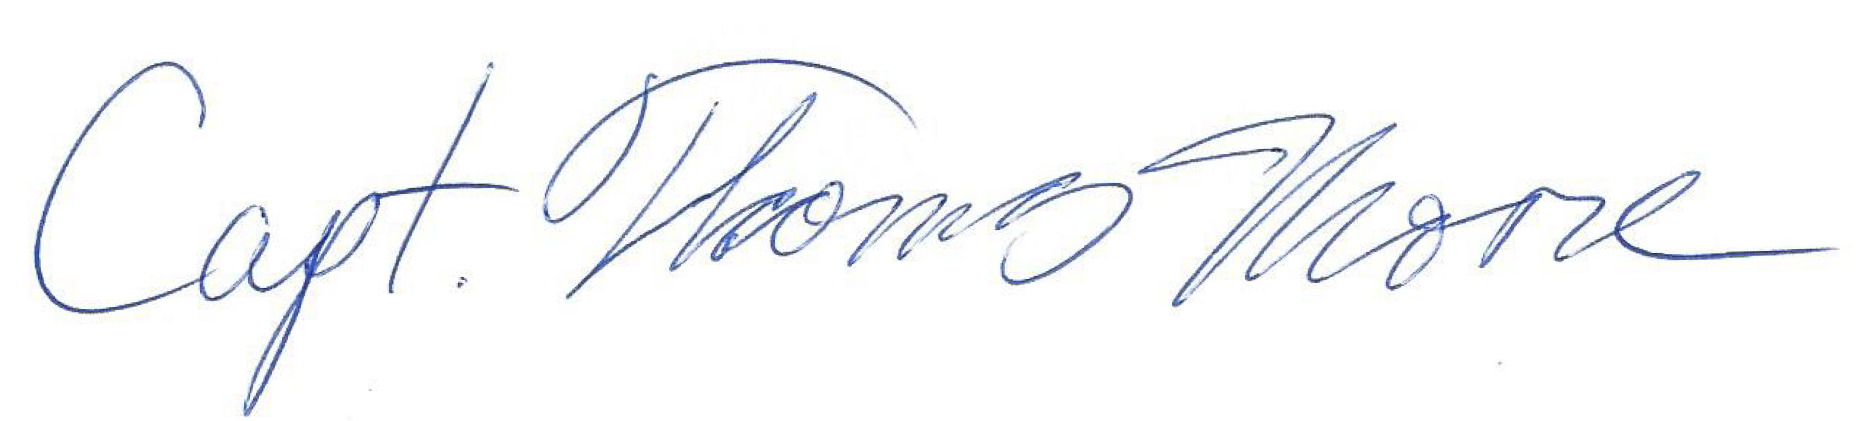 Capt. Thomas Moore